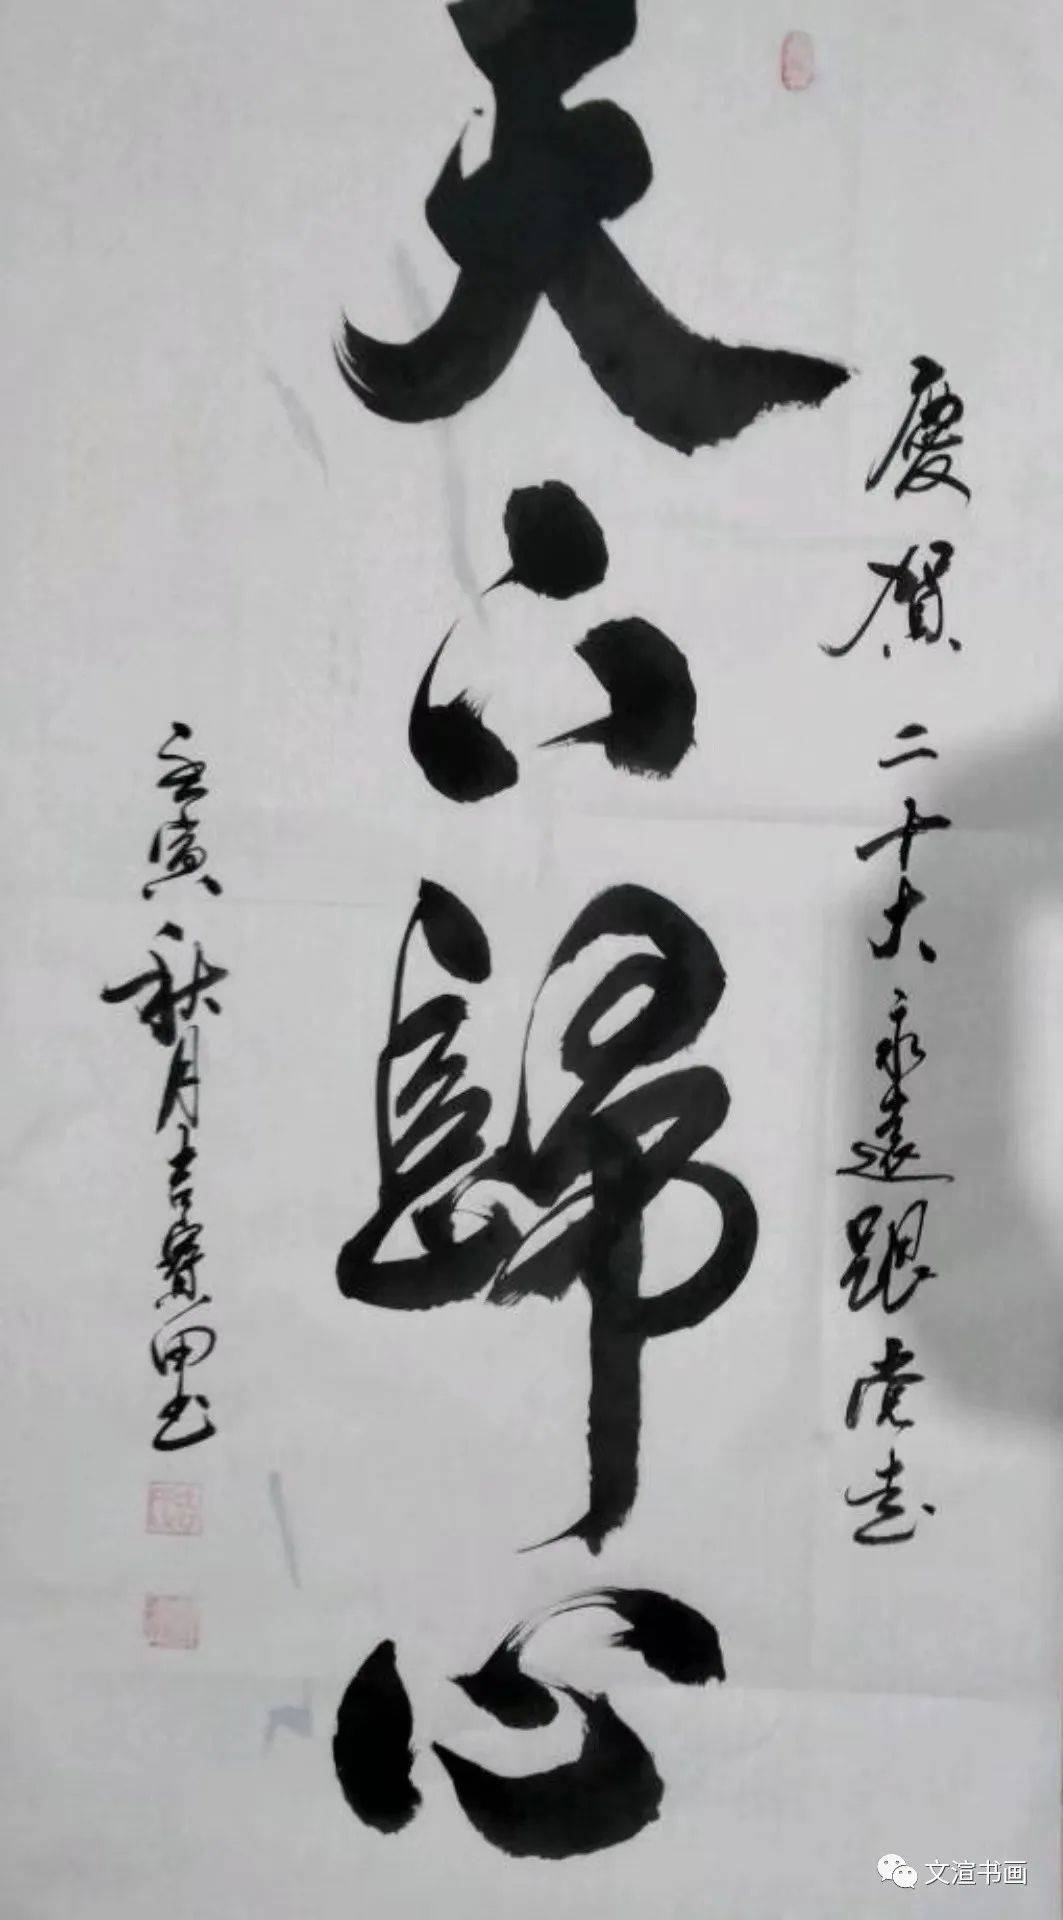 慶賀二十大永遠跟党走
天下歸心
壬寅秋月吉寶田书
文渲书画